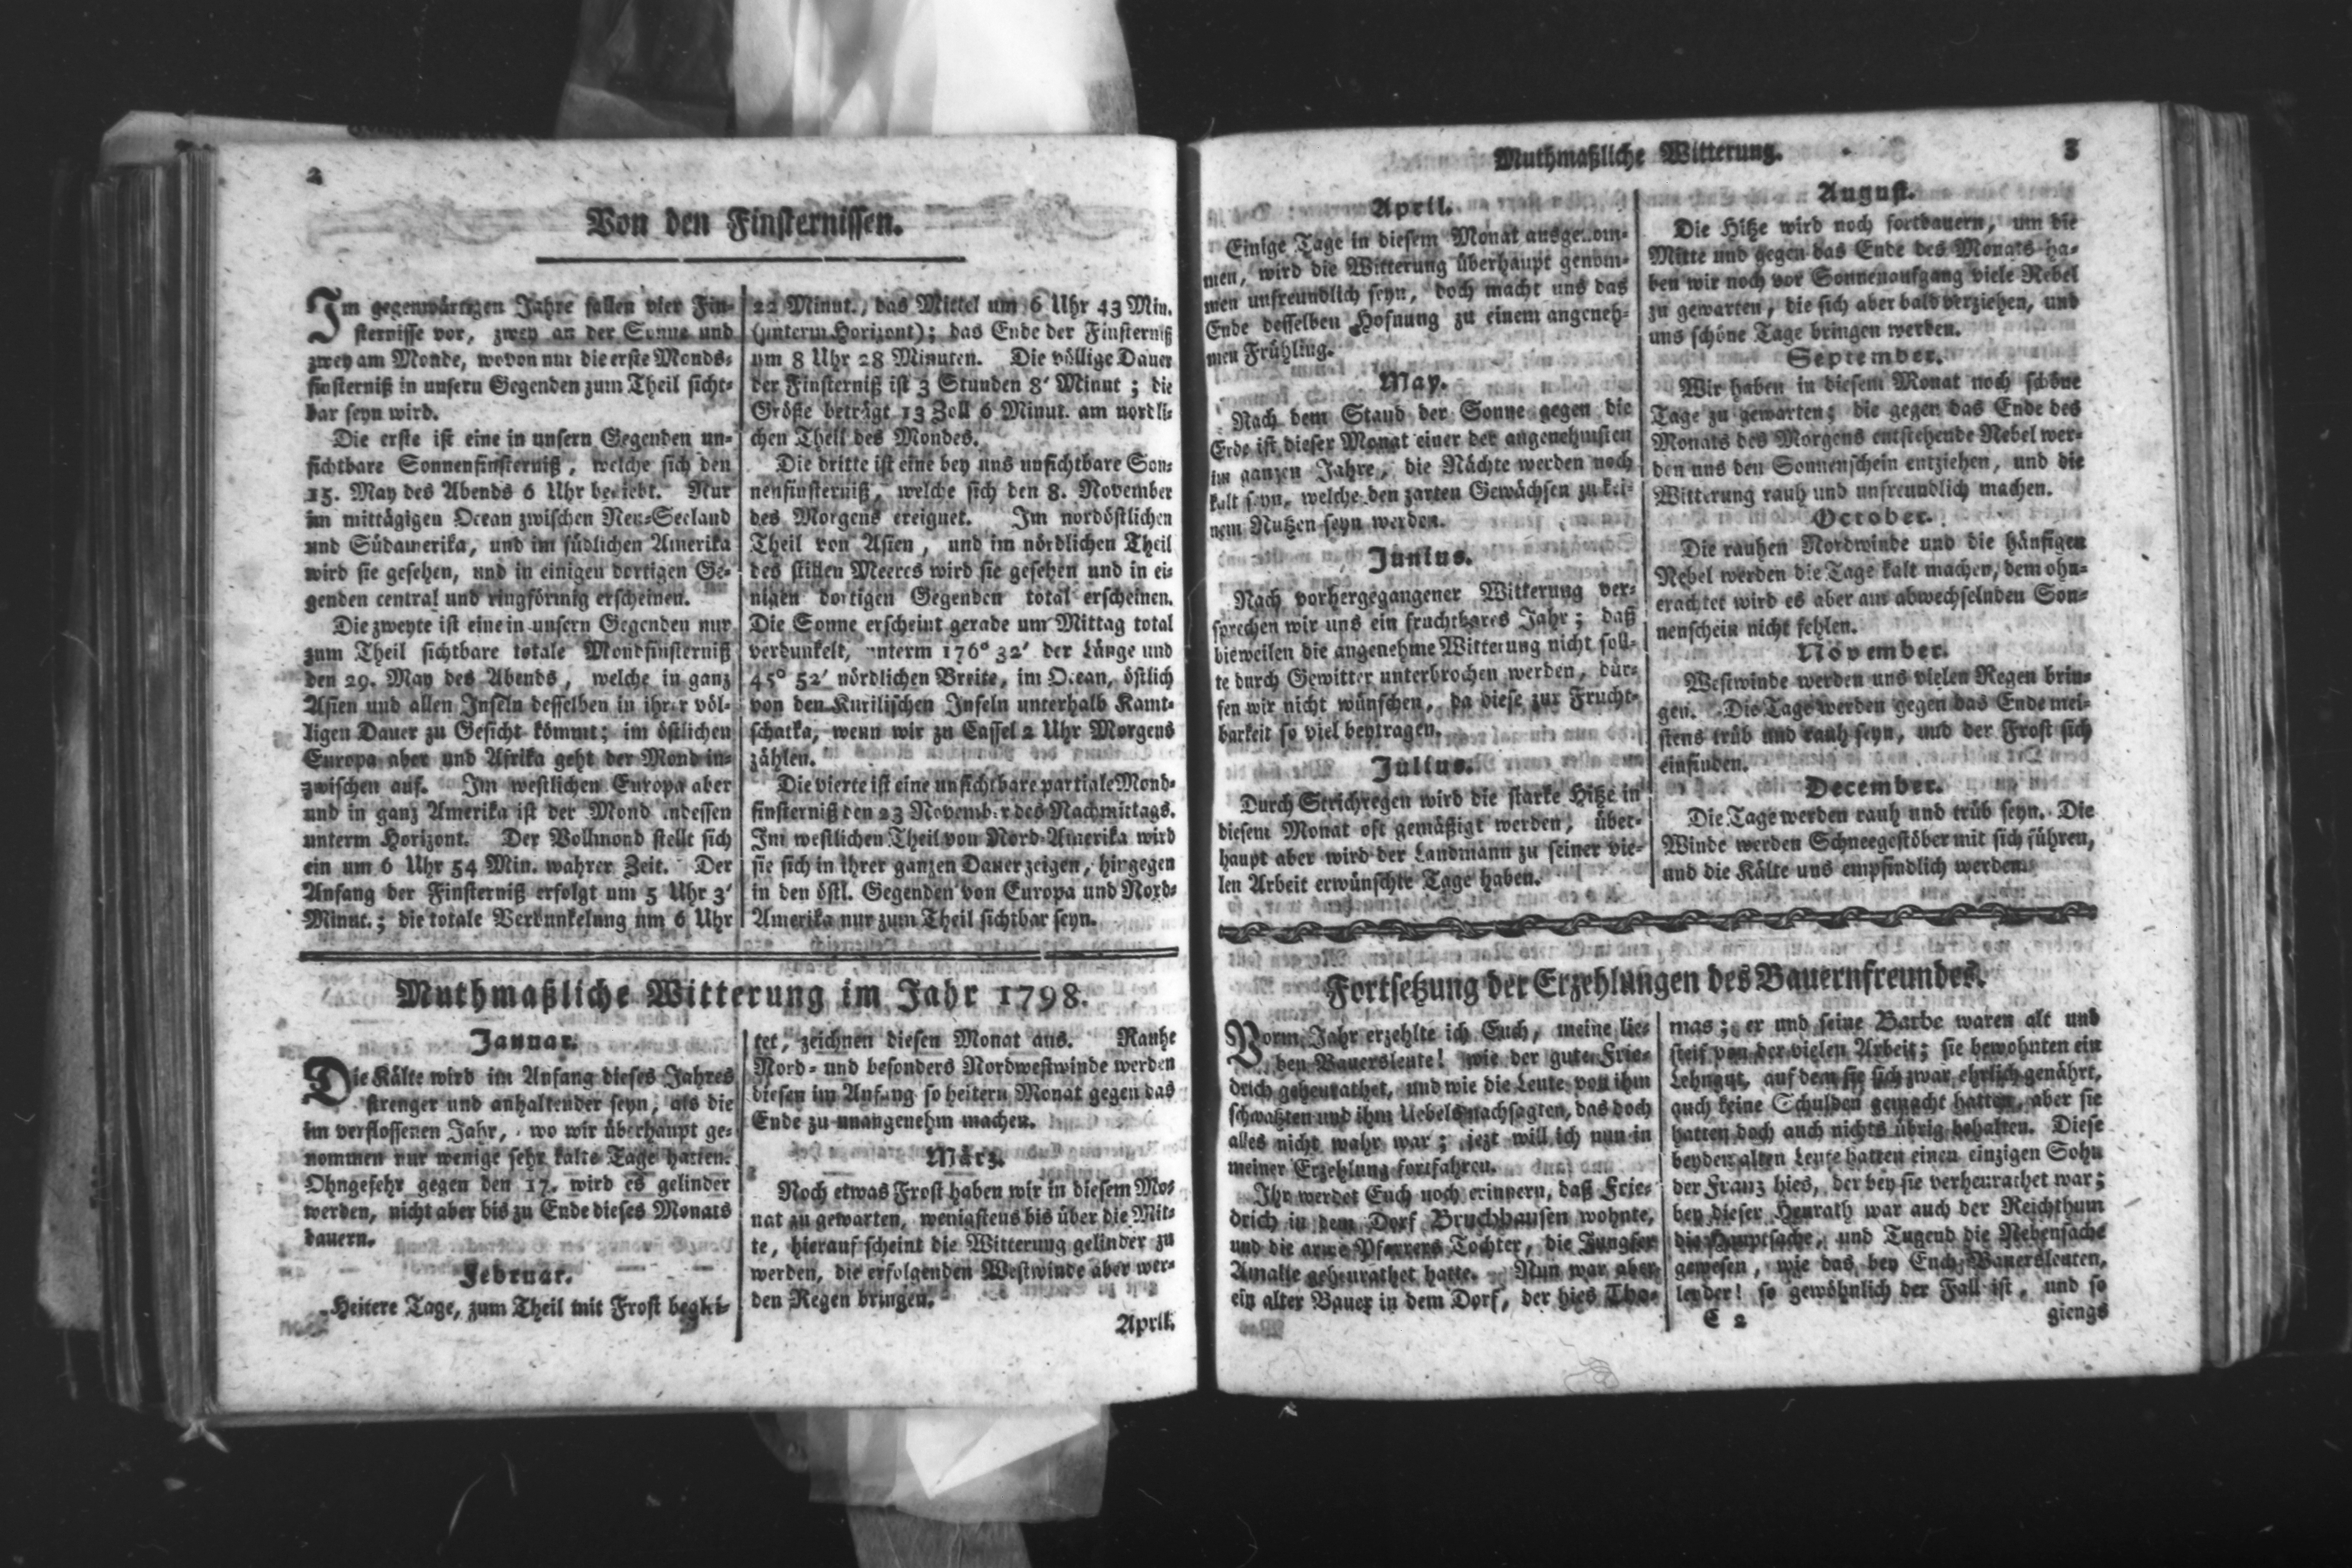 2
Von den Finsternissen.
Im gegenwärtigen Jahre fallen vier Fin-
sternisse vor, zwey an der Sonne und
zwey am Monde, wovon nur die erste Monds-
finsterniß in unsern Gegenden zum Theil sicht-
bar seyn wird.
Die erste ist eine in unsern Gegenden un-
sichtbare Sonnenfinsterniß, welche sich den
15. May des Abends 6 Uhr begiebt. Nur
im mittägigen Ocean zwischen Neu-Seeland
und Südamerika, und im südlichen Amerika
wird sie gesehen, und in einigen dortigen Ge-
genden central und ringförmig erscheinen.
Die zweyte ist eine in unsern Gegenden nur
zum Theil sichtbare totale Mondfinsterniß
den 29. May des Abends, welche in ganz
Asien und allen Inseln desselben in ihrer völ-
ligen Dauer zu Gesicht kömmt; im östlichen
Europa aber und Afrika geht der Mond in-
zwischen auf. Im westlichen Europa aber
und in ganz Amerika ist der Mond indessen
unterm Horizont. Der Vollmond stellt sich
ein um 6 Uhr 54 Min. wahrer Zeit. Der
Anfang der Finsterniß erfolgt um 5 Uhr 3'
Minut.; die totale Verdunkelung um 6 Uhr
22 Minut., das Mittel um 6 Uhr 43 Min.
(unterm Horizont); das Ende der Finsterniß
um 8 Uhr 28 Minuten. Die völlige Dauer
der Finsterniß ist 3 Stunden 8' Minut; die
Größe beträgt 13 Zoll 6 Minut. am nördli-
chen Theil des Mondes.
Die dritte ist eine bey uns unsichtbare Son-
nenfinsterniß, welche sich den 8. November
des Morgens ereignet. Im nordöstlichen
Theil von Asien, und im nördlichen Theil
des stillen Meeres wird sie gesehen und in ei-
nigen dortigen Gegenden total erscheinen.
Die Sonne erscheint gerade um Mittag total
verdunkelt, unterm 176° 32' der Länge und
45° 52' nördlichen Breite, im Ocean, östlich
von den Kurilischen Inseln unterhalb Kamt-
schatka, wenn wir zu Cassel 2 Uhr Morgens
zählen.
Die vierte ist eine unsichtbare partiale Mond-
finsterniß den 23 November des Nachmittags.
Im westlichen Theil von Nord-Amerika wird
sie sich in ihrer ganzen Dauer zeigen, hingegen
in den östl. Gegenden von Europa und Nord-
Amerika nur zum Theil sichtbar seyn.
Muthmaßliche Witterung im Jahr 1798.
Januar.
Die Kälte wird im Anfang dieses Jahres
strenger und anhaltender seyn, als die
im verflossenen Jahr, wo wir überhaupt ge-
nommen nur wenige sehr kalte Tage hatten.
Ohngefehr gegen den 17. wird es gelinder
werden, nicht aber bis zu Ende dieses Monats
dauern.
Februar.
Heitere Tage, zum Theil mit Frost beglei-
tet, zeichnen diesen Monat aus. Rauhe
Nord- und besonders Nordwestwinde werden
diesen im Anfang so heitern Monat gegen das
Ende zu unangenehm machen.
März.
Noch etwas Frost haben wir in diesem Mo-
nat zu gewarten, wenigstens bis über die Mit-
te, hierauf scheint die Witterung gelinder zu
werden, die erfolgenden Westwinde aber wer-
den Regen bringen.
April.
Muthmaßliche Witterung.
3
April.
Einige Tage in diesem Monat ausgenom-
men, wird die Witterung überhaupt genom-
men unfreundlich seyn, doch macht uns das
Ende desselben Hofnung zu einem angeneh-
men Frühling.
May.
Nach dem Stand der Sonne gegen die
Erde ist dieser Monat einer der angenehmsten
im ganzen Jahre, die Nächte werden noch
kalt seyn, welche den zarten Gewächsen zu kei-
nem Nutzen seyn werden.
Junius.
Nach vorhergegangener Witterung ver-
sprechen wir uns ein fruchtbares Jahr; daß
bieweilen die angenehme Witterung nicht soll-
te durch Gewitter unterbrochen werden, dür-
fen wir nicht wünschen, da diese zur Frucht-
barkeit so viel beytragen.
Julius.
Durch Strichregen wird die starke Hitze in
diesem Monat oft gemäßigt werden, über-
haupt aber wird der Landmann zu seiner vie-
len Arbeit erwünschte Tage haben.
August.
Die Hitze wird noch fortdauern, um die
Mitte und gegen das Ende des Monats ha-
ben wir noch vor Sonnenaufgang viele Nebel
zu gewarten, die sich aber bald verziehen, und
uns schöne Tage bringen werden.
September.
Wir haben in diesem Monat noch schöne
Tage zu gewarten; die gegen das Ende des
Monats des Morgens entstehende Nebel wer-
den uns den Sonnenschein entziehen, und die
Witterung rauh und unfreundlich machen.
October.
Die rauhen Nordwinde und die häufigen
Nebel werden die Tage kalt machen, dem ohn-
erachtet wird es aber am abwechselnden Son-
nenschein nicht fehlen.
November.
Westwinde werden uns vielen Regen brin-
gen. Die Tage werden gegen das Ende mei-
stens trüb und rauh seyn, und der Frost sich
einfinden.
December.
Die Tage werden rauh und trüb seyn. Die
Winde werden Schneegestöber mit sich führen,
und die Kälte uns empfindlich werden.
Fortsetzung der Erzehlungen des Bauernfreundes.
Vorm Jahr erzehlte ich Euch, meine lie-
ben Bauersleute! wie der gute Frie-
drich geheurathet, und wie die Leute von ihm
schwatzten und ihm Uebels nachsagten, das doch
alles nicht wahr war; jezt will ich nun in
meiner Erzehlung fortfahren.
Ihr werdet Euch noch erinnern, daß Frie-
drich in dem Dorf Bruchhausen wohnte,
und die arme Pfarrers Tochter, die Jungfer
Amalie geheurathet hatte. Nun war aber
ein alter Bauer in dem Dorf, der hies Tho-
mas; er und seine Barbe waren alt und
steif von der vielen Arbeit; sie bewohnten ein
Lehngut, auf dem sie sich zwar ehrlich genährt,
auch keine Schulden gemacht hatten, aber sie
hatten doch auch nichts übrig behalten. Diese
beyden alten Leute hatten einen einzigen Sohn
der Franz hies, der bey sie verheurathet war;
bey dieser Heurath war auch der Reichthum
die Hauptsache, und Tugend die Nebensache
gewesen, wie das bey Euch Bauersleuten,
leyder! so gewöhnlich der Fall ist, und so
C 2
giengs